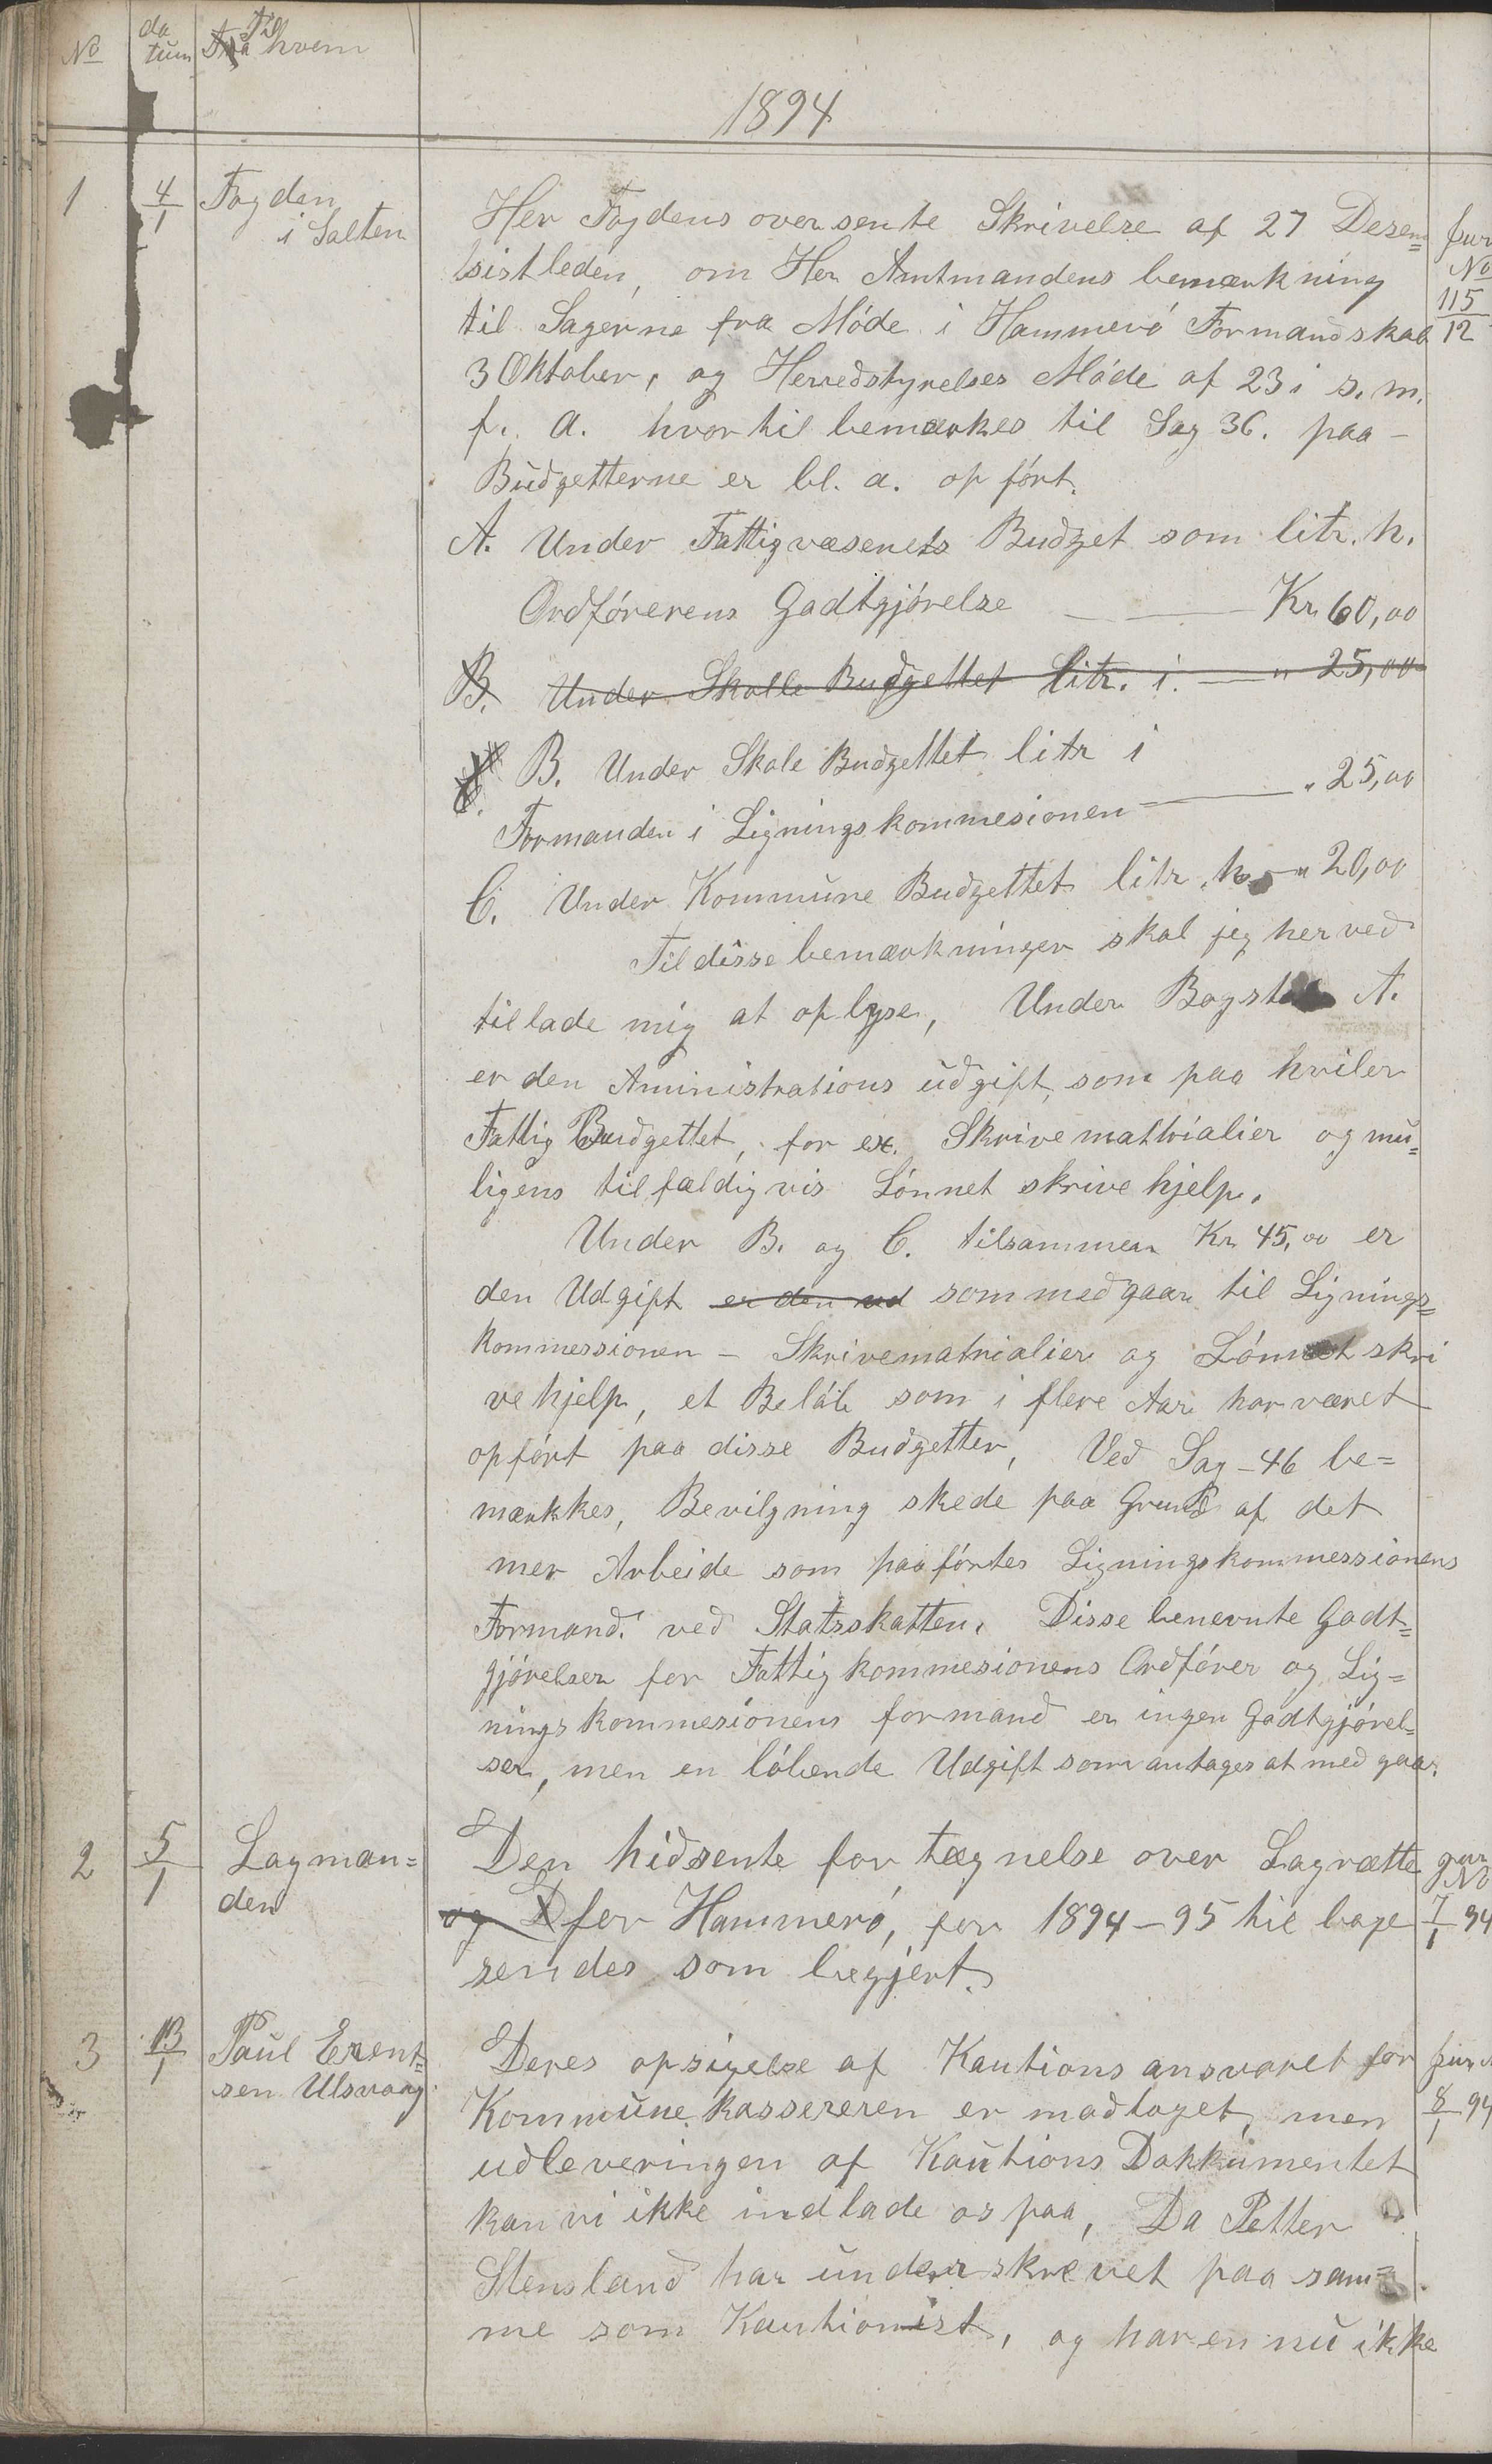 No
da
tum
Til
Fra hvem
1894
1
4/1
Fogden
i Salten
Her Fogdens oversente Skrivelse af 27 Desem=
sistleden, om Her Amtmandens bemærkning
til Sagerne fra Móde i Hammeró Formandskab
3 Oktober, og Herredstyrelses Móde af 23 i s. m.
f. a. hvortil bemærkes til Sag 36. paa -
Budgetterne er bl. a. op fórt.
A. Under Fattigvæsenets Budget som litr. h.
Ordfórerens Gadtgjórelse — Kr. 60,00
B. Under Skolle Budgettet litr. i. — " 25,00
B. Under Skole Budgettet litr i
Formanden i Ligningskommesionen — " 25,00
C. Under Kommune Budgettet litr. h. — " 20,00
Til disse bemærkninger skal jeg herved
tillade mig at oplyse, Under Bogstav A.
er den Aministrations udgift, som paa hviler
Fattig Budgettet, for ex. Skrivemattrialier og mu=
ligens tilfældigvis Lónnet skrive hjelp.
Under B. og C. tilsammen Kr. 45,00 er
den Udgift er den ud som medgaar til Lignings=
kommessionen - Skrivematrialier og Lónnet skri
ve hjelp, et Belób som i flere Aar har været
opfórt paa disse Budgetter, Ved Sag - 46 be=
mærkkes, Bevilgning skede paa Grund af det
mer Arbeide som paafórtes Ligningskommessionens
Formand. ved Statsskatten. Disse benevnte Godt=
gjórelser for Fattigkommesionens Ordfórer og Lig=
ningskommesionens formand er ingen Godtgjórel=
ser, men en lóbende Udgift som antages at med gaar.
jur
No
115
12
2
5/1
Lagman=
den
Den hidsente for tægnelse over Lagrætte
og D for Hammeró, for 1894-95 til bage
sendes som begjert.
jur
No
7/1 94
3
13/1
Paul Erent=
sen Ulsvaag
Deres opsigelse af Kautions ansvaret for
Kommune kassereren er modtaget, men
udleveringen af Kautions Dokkumentet
kan vi ikke indlade os paa, Da Petter
Stensland har underskrevet paa sam=
me som Kautionist, og har en nu ikke
jur N
8/1 94